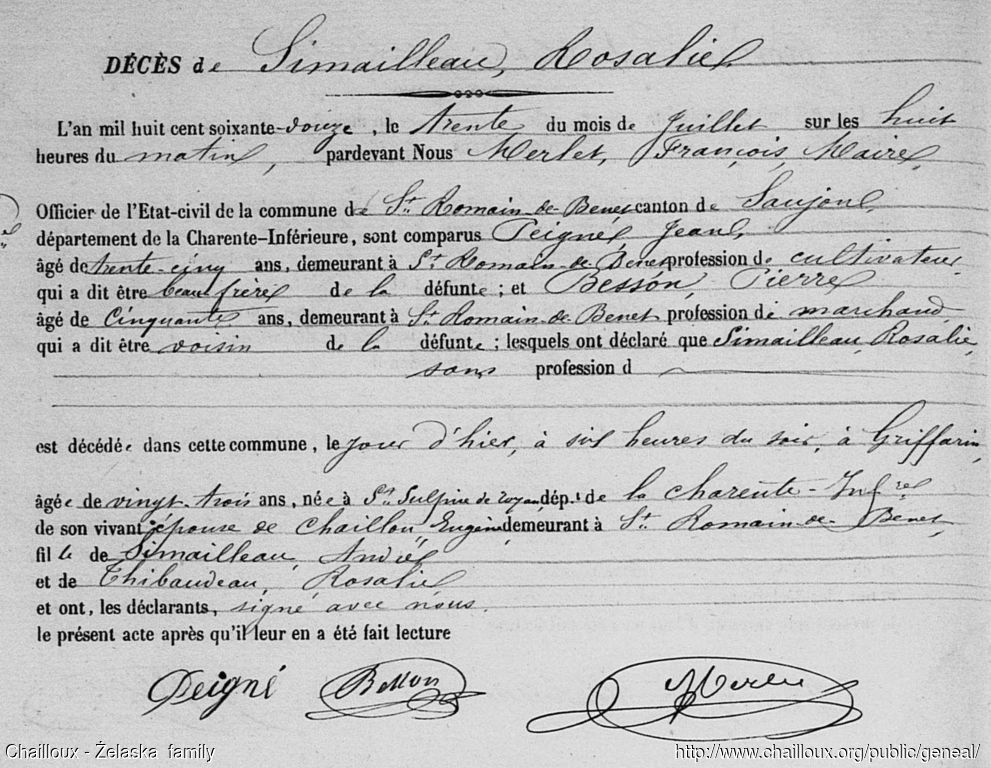 DÉCÈS de Simailleau, Rosalie
L'an mil huit cent soixante-douze, le trente du mois de Juillet sur les huit
heures du matin, pardevant Nous Merlet, François, Maire,
Officier de l'Etat-civil de la commune de St Romain-de-Benet canton de Saujon,
département de la Charente-Inférieure, sont comparus Peigné, Jean,
âgé de trente-cinq ans, demeurant à St Romain-de-Benet profession de cultivateur,
qui a dit être beau frère de la défunte ; et Besson, Pierre
âgé de Cinquante ans, demeurant à St Romain-de-Benet profession de marchand
qui a dit être voisin de la défunte ; lesquels ont déclaré que Simailleau, Rosalie,
sans profession d
est décédée dans cette commune, le jour d'hier, à six heures du soir, à Griffarin,
âgée de vingt-trois ans, née à St Sulpice de Royan dép.t de la Charente-Infre
de son vivant épouse de Chaillou, Eugène demeurant à St Romain-de-Benet,
fille de Simailleau, André
et de Thibaudeau, Rosalie
et ont, les déclarants, signé avec nous.
le présent acte après qu'il leur en a été fait lecture
Peigné Besson Merlet
Chailloux - Żelaska family http://www.chailloux.org/public/geneal/